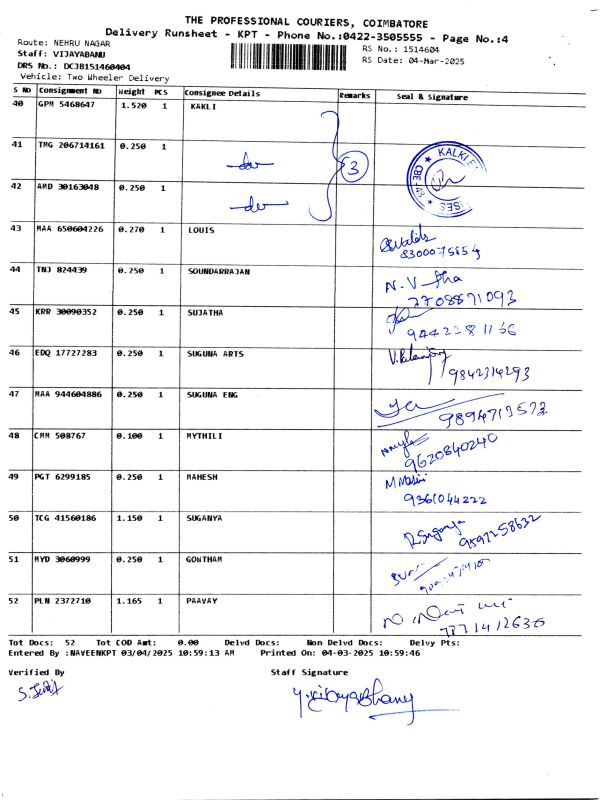 THE PROFESSIONAL COURIERS, COIMBATORE
Delivery Runsheet - KPT - Phone No.:0422-3505555 - Page No.:4
Route: NEHRU NAGAR
RS No.: 1514604
Staff: VIJAYABANU
RS Date: 04-Mar-2025
DRS No.: DCJB151460404
Vehicle: Two Wheeler Delivery
S No Consignment No Weight PCS Consignee Details Remarks Seal & Signature
40 GPM 5468647 1.520 1 KAKLI
41 TMG 206714161 0.250 1
3
42 AMD 30163048 0.250 1
43 MAA 650604226 0.270 1 LOUIS
44 TNJ 824439 0.250 1 SOUNDARRAJAN
N.V
7708871093
45 KRR 30090352 0.250 1 SUJATHA
46 EDQ 17727283 0.250 1 SUGUNA ARTS
9842314293
47 MAA 944604886 0.250 1 SUGUNA ENG
9894713573
48 CMM 508767 0.100 1 MYTHILI
9620840240
49 PGT 6299185 0.250 1 MAHESH
9361044222
50 TCG 41560186 1.150 1 SUGANYA
R.Suganya
51 MYD 3060999 0.250 1 GOWTHAM
52 PLN 2372710 1.165 1 PAAVAY
Tot Docs: 52 Tot COD Amt: 0.00 Delvd Docs: Non Delvd Docs: Delvy Pts:
Entered By :NAVEENKPT 03/04/2025 10:59:13 AM Printed On: 04-03-2025 10:59:46
Verified By Staff Signature